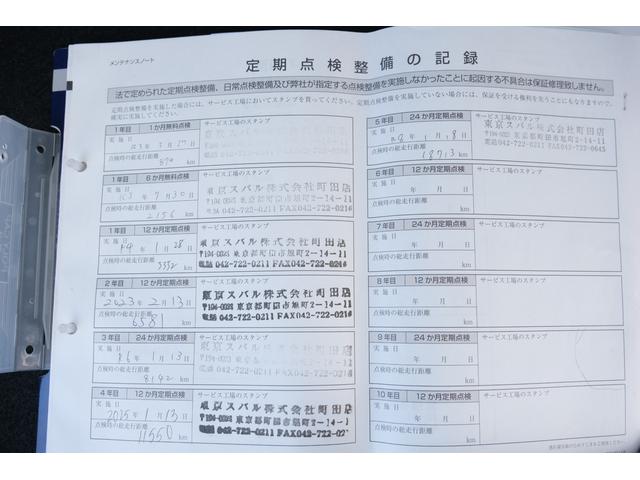 メンテナンスノート
定期点検整備の記録
法で定められた定期点検整備、日常点検整備及び弊社が指定する点検整備を実施しなかったことに起因する不具合は保証修理致しません。
定期点検整備を実施した場合には、サービス工場においてスタンプを貰ってください。定期点検整備を実施していない場合には、保証を受ける権利を失うことにもなりますので、
確実に実施してください。
1年目 1か月無料点検
サービス工場のスタンプ
実施日
点検時の総走行距離
km
1年目 6か月無料点検
サービス工場のスタンプ
実施日
R3年7月30日
点検時の総走行距離
2156 km
東京スバル株式会社町田店
〒194-0023 東京都町田市旭町2-14-11
電話 042-722-0211 FAX042-722-0216
1年目 12か月定期点検
サービス工場のスタンプ
実施日
R4年1月28日
点検時の総走行距離
3352 km
東京スバル株式会社町田店
〒194-0023 東京都町田市旭町2-14-11
電話 042-722-0211 FAX042-722-0216
2年目 12か月定期点検
サービス工場のスタンプ
実施日
2023年2月13日
点検時の総走行距離
6581 km
東京スバル株式会社町田店
〒194-0023 東京都町田市旭町2-14-11
電話 042-722-0211 FAX042-722-0216
3年目 24か月定期点検
サービス工場のスタンプ
実施日
R6年1月13日
点検時の総走行距離
8142 km
東京スバル株式会社町田店
4年目 12か月定期点検
サービス工場のスタンプ
実施日
2025年1月13日
点検時の総走行距離
11550 km
東京スバル株式会社町田店
〒194-0023 東京都町田市旭町2-14-1
電話 042-722-0211 FAX042-722-02
5年目 24か月定期点検
サービス工場のスタンプ
実施日
R8年1月18日
点検時の総走行距離
18713 km
東京スバル株式会社町田店
〒194-0023 東京都町田市旭町2-14-11
6年目 12か月定期点検
サービス工場のスタンプ
実施日
年 月 日
点検時の総走行距離
km
7年目 24か月定期点検
サービス工場のスタンプ
実施日
年 月 日
点検時の総走行距離
km
8年目 12か月定期点検
サービス工場のスタンプ
実施日
年 月 日
点検時の総走行距離
km
9年目 24か月定期点検
サービス工場のスタンプ
実施日
年 月 日
点検時の総走行距離
km
10年目 12か月定期点検
サービス工場のスタンプ
実施日
年 月 日
点検時の総走行距離
km